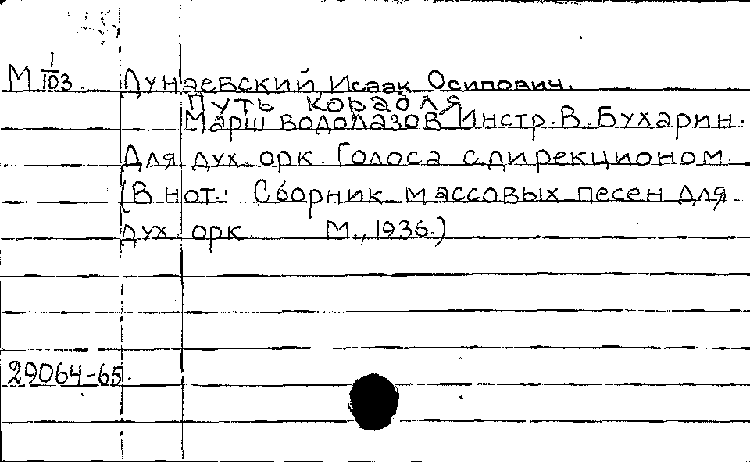 М 1/103. Дунаевский, Исаак Осипович.
Путь корабля
Марш водолазов. Инстр. В. Бухарин.
Для дух. орк. Голоса с дирекционом
(В нот.: Сборник массовых песен для
дух. орк. М., 1936.)
29064-65.